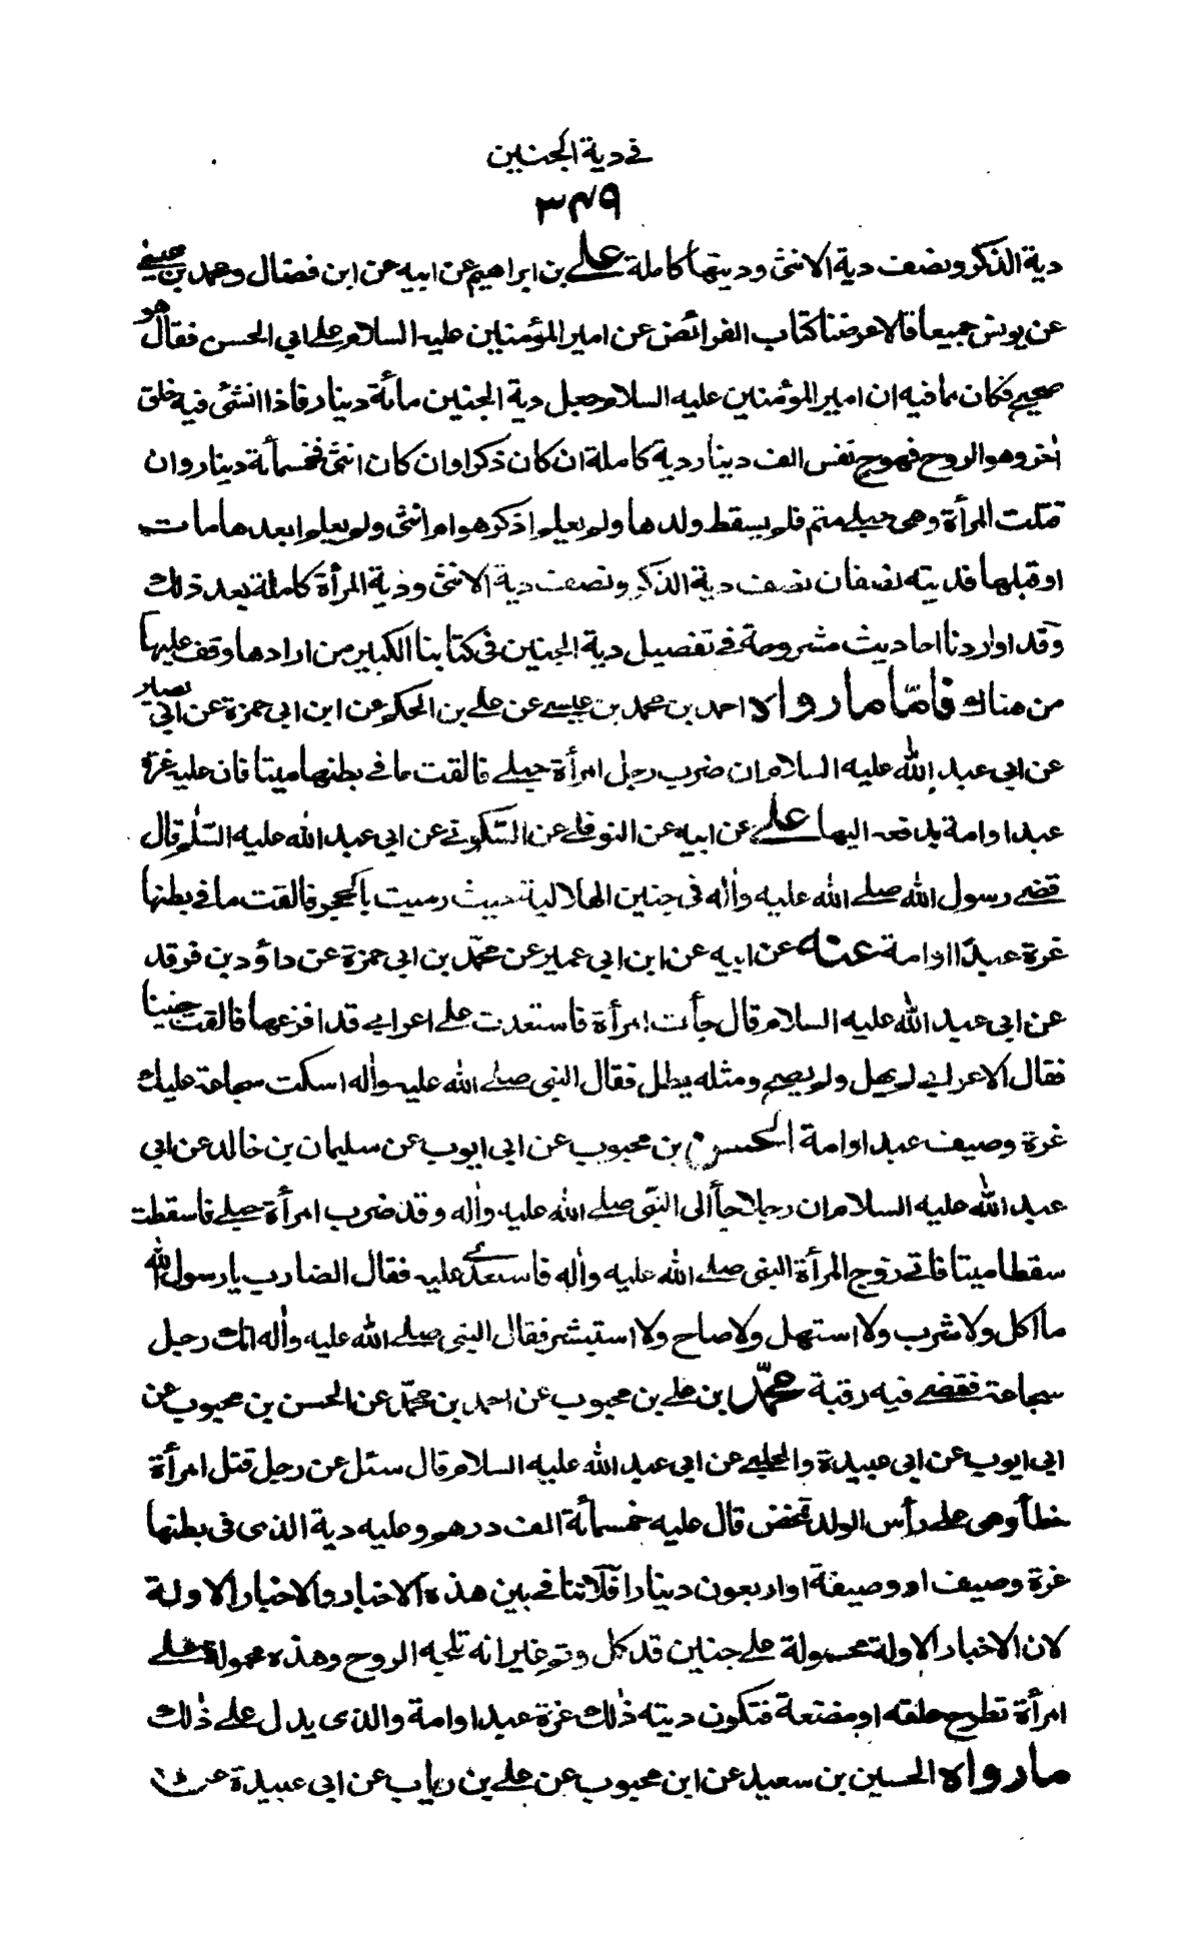 في دية الجنين
٣٤٩
دية الذكر ونصف دية الانثى وديتها كاملة علي بن ابراهيم عن ابيه عن ابن فضال ومحمد بن عيسى
عن يونس جميعا قالا عرضنا كتاب الفرائض عن امير المؤمنين عليه السلام على ابي الحسن فقال هو
صحيح فكان مما فيه ان امير المؤمنين عليه السلام جعل دية الجنين مائة دينار فاذا انشئ فيه خلق
اٰخر وهو الروح فهو ح نفس الف دينار دية كاملة ان كان ذكرا وان كان انثى فخمسمائة دينار وان
قتلت المرأة وهى حبلى متم فلم يسقط ولدها ولم يعلم اذكر هو ام انثى ولم يعلم ابعدها مات
او قبلها فديته نصفان نصف دية الذكر ونصف دية الانثى ودية المرأة كاملة بعد ذلك
وقد اوردنا احاديث مشروحة في تفصيل دية الجنين في كتابنا الكبير من ارادها وقف عليها
من هناك فامّا ما رواه احمد بن محمد بن عيسى عن علي بن الحكم عن ابن ابي حمزة عن ابي بصير
عن ابي عبد الله عليه السلام ان ضرب رجل امرأة حبلى فالقت ما في بطنها ميتا فان عليه غرة
عبد او امة يدفعه اليها علي عن ابيه عن النوفلي عن السّكوني عن ابي عبد الله عليه السّلم قال
قضى رسول الله صلى الله عليه واٰله في جنين الهلالية حيث رميت بالحجر فالقت ما في بطنها
غرة عبدًا او امة عنه عن ابيه عن ابن ابي عمير عن محمّد بن ابي حمزة عن داؤد بن فرقد
عن ابي عبد الله عليه السلام قال جأت امرأة فاستعدت على اعرابي قد افزعها فالقت جنينا
فقال الاعرابي لم يهل ولم يصح ومثله يطل فقال النبي صلى الله عليه واٰله اسكت سجاعة عليك
غرة وصيف عبد او امة الحسن بن محبوب عن ابي ايوب عن سليمان بن خالد عن ابي
عبد الله عليه السلام ان رجلا جأ الى النبّي صلى الله عليه واٰله وقد ضرب امرأة حبلى فاسقطت
سقطا ميتا فاتى زوج المرأة النبي صلى الله عليه واٰله فاستعدى عليه فقال الضارب يا رسول الله
ما اكل ولا شرب ولا استهل ولا صاح ولا استبشر فقال النبي صلى الله عليه واٰله انك رجل
سجاعة فقضى فيه رقبة محمّد ابن علي بن محبوب عن احمد بن محمّد عن الحسن بن محبوب عن
ابي ايوب عن ابي عبيدة والحلبي عن ابي عبد الله عليه السلام قال سئل عن رجل قتل امرأة
خطأ وهى على رأس الولد تمخض قال عليه خمسمأئة الف درهم وعليه دية الذى فى بطنها
غرة وصيف او وصيفة او اربعون دينارا فلا تنافي بين هذه الاخبار والاخبار الاولة
لان الاخبار الاولة محمولة على جنين قد كمل وتم غير انه تلجه الروح وهذه محمولة على
امرأة تطرح علقه او مضغة فتكون ديته ذٰلك غرة عبد او امة والذى يدل على ذٰلك
ما رواه الحسين بن سعيد عن ابن محبوب عن علي بن رياب عن ابي عبيدة عن